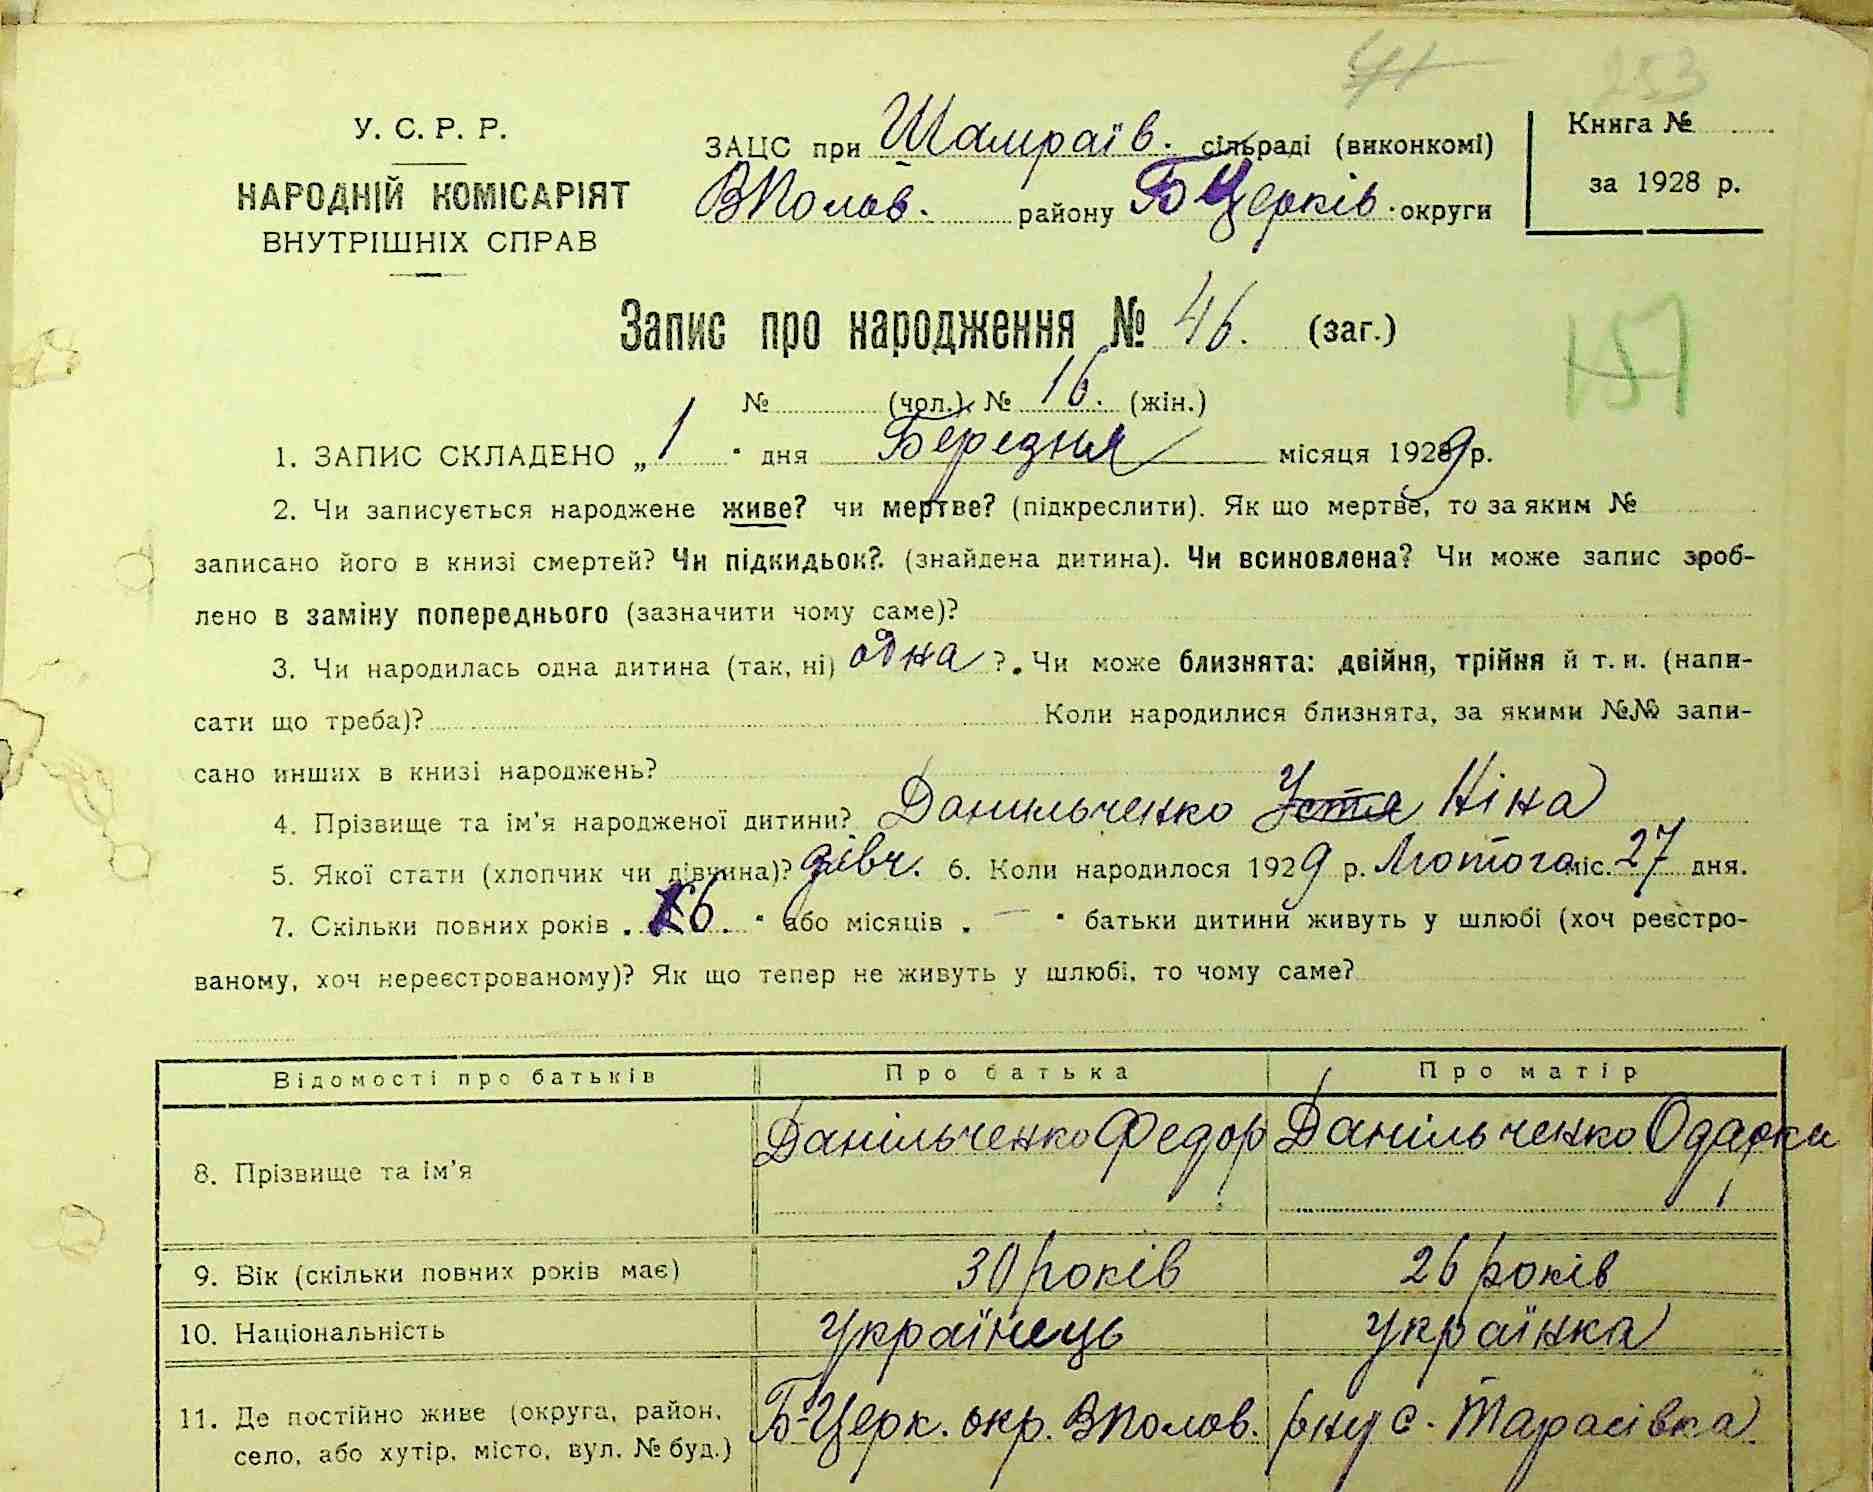 253
У. С. Р. Р.
НАРОДНІЙ КОМІСАРІЯТ
ВНУТРІШНІХ СПРАВ
ЗАЦС при Шамраїв. сільраді (виконкомі)
ВПолов. району БЦерків. округи
Книга №
за 1928 р.
Запис про народження № 46. (заг.)
№ (чол.). № 16. (жін.)
1. ЗАПИС СКЛАДЕНО „ 1 " дня Березня місяця 1929 р.
2. Чи записується народжене живе? чи мертве? (підкреслити). Як що мертве, то за яким №
записано його в книзі смертей? Чи підкидьок? (знайдена дитина). Чи всиновлена? Чи може запис зроб-
лено в заміну попереднього (зазначити чому саме)?
3. Чи народилась одна дитина (так, ні) одна ?. Чи може близнята: двійня, трійня й т. и. (напи-
сати що треба)? Коли народилися близнята, за якими №№ запи-
сано инших в книзі народжень?
4. Прізвище та ім'я народженої дитини? Данильченко Устя Ніна
5. Якої стати (хлопчик чи дівчина)? дівч. 6. Коли народилось 1929 р. Лютого міс. 27 дня.
7. Скільки повних років „ 6. " або місяців „ — " батьки дитини живуть у шлюбі (хоч реєстро-
ваному, хоч нереєстрованому)? Як що тепер не живуть у шлюбі, то чому саме?
Відомості про батьків Про батька Про матір
8. Прізвище та ім'я Данільченко Федор Данільченко Одарка
9. Вік (скільки повних років має) 30 років 26 років
10. Національність Українець Українка
11. Де постійно живе (округа, район, Б-Церк. окр. ВПолов. рну с. Тарасівка
село, або хутір, місто, вул. № буд.)